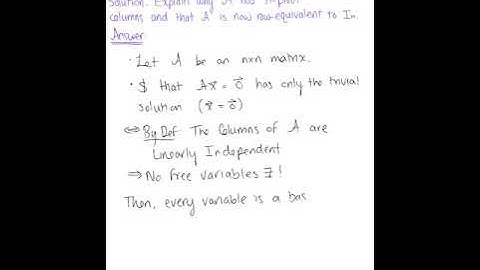 Solution. Explain why A has n-pivot
columns and that A is now row-equivalent to In.
Answer:
· Let A be an nxn matrix.
· $ that Ax⃗ = 0⃗ has only the trivial
solution (x⃗ = 0⃗)
⇔ By Def The Columns of A are
Linearly Independent
⇒ No free variables ∃!
Then, every variable is a bas